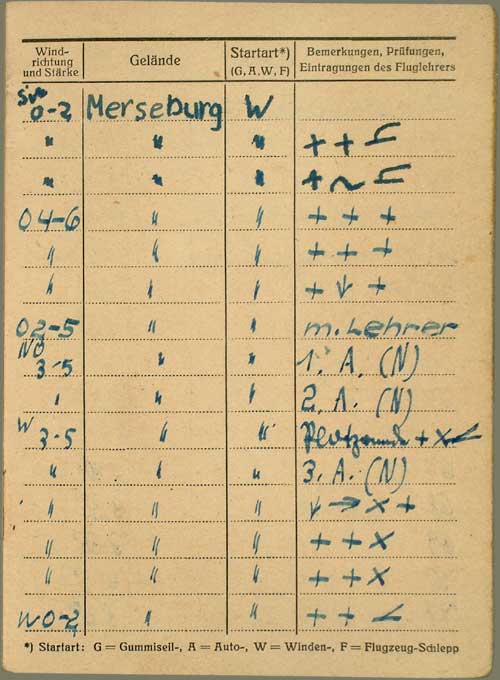 Wind-
richtung
und Stärke
Gelände
Startart*)
(G, A, W, F)
Bemerkungen, Prüfungen,
Eintragungen des Fluglehrers
0-2 Merseburg W
" " " + +
" " " + ~
O4-6 " " + + +
" " " + + +
" " " + ↓ +
O2-5 " " m. Lehrer
NO
3-5 " " 1. A. (N)
" " " 2. A. (N)
W
3-5 " " Platzrunde + x
" " " 3. A. (N)
" " " ↓ → x +
" " " + + x
" " " + + x
W0-2 " " + +
*) Startart: G = Gummiseil-, A = Auto-, W = Winden-, F = Flugzeug-Schlepp